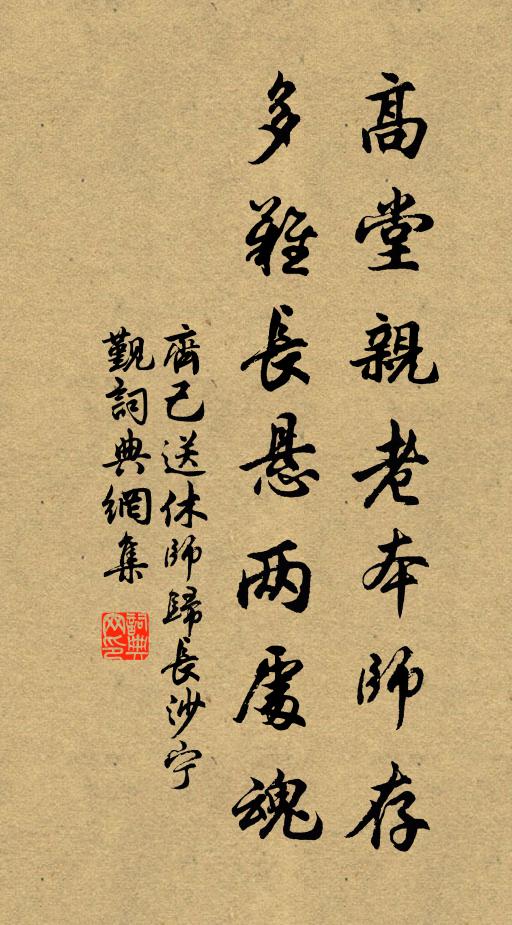 高堂親老本師存
多難長悬两處魂
齊己送休師歸長沙宁
覲詞典網集
詞典网印